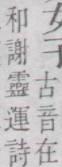 古音在
和謝靈運詩